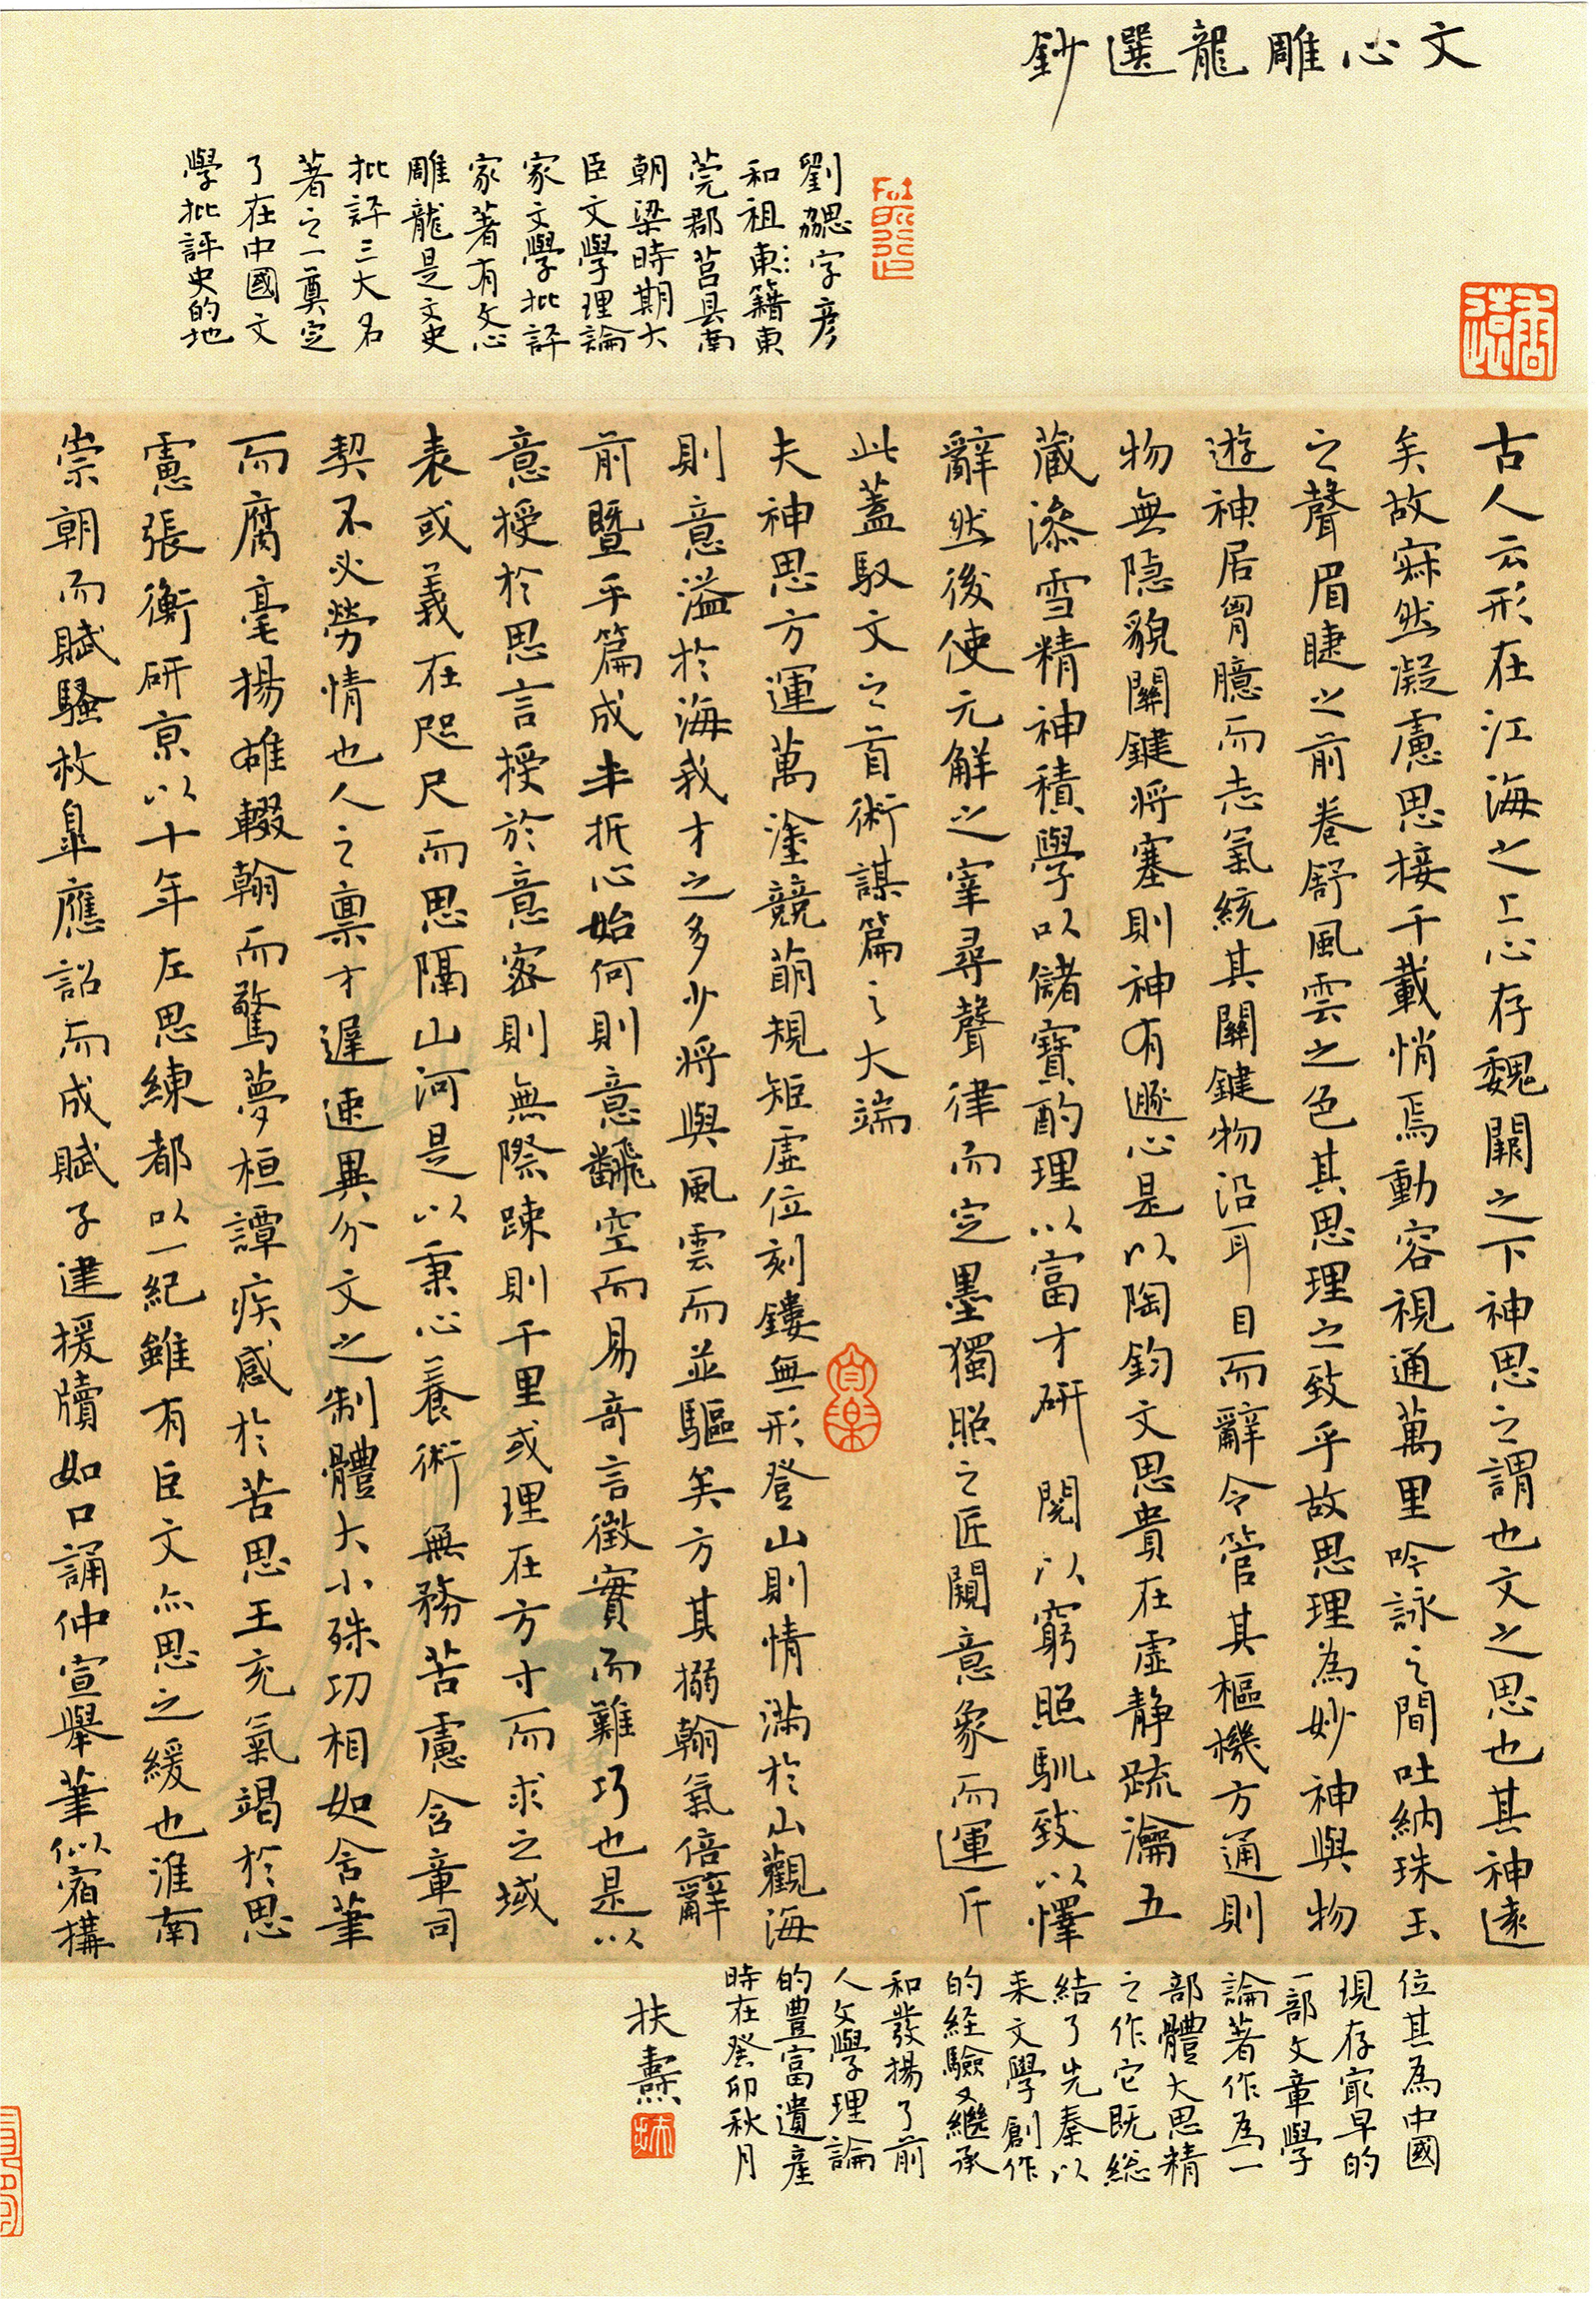 文心雕龍選鈔
劉勰字彥
和祖東籍東
莞郡莒县南
朝梁時期大
臣文學理論
家文學批評
家著有文心
雕龍是文史
批評三大名
著之一奠定
了在中國文
學批評史的地
古人云形在江海之上心存魏闕之下神思之謂也文之思也其神遠
矣故寂然凝慮思接千載悄焉動容視通萬里吟詠之間吐納珠玉
之聲眉睫之前卷舒風雲之色其思理之致乎故思理為妙神與物
遊神居胷臆而志氣統其關鍵物沿耳目而辭令管其樞機方通則
物無隐貌關鍵將塞則神有遯心是以陶鈞文思貴在虛静疏瀹五
藏澡雪精神積學以儲寶酌理以富才研閱以窮照馴致以懌
辭然後使元解之宰尋聲律而定墨獨照之匠闚意象而運斤
此蓋馭文之首術謀篇之大端
夫神思方運萬塗競萌規矩虛位刻鏤無形登山則情滿於山觀海
則意溢於海我才之多少將與風雲而並驅矣方其搦翰氣倍辭
前暨乎篇成半折心始何則意飜空而易奇言徵實而難巧也是以
意授於思言授於意密則無際踈則千里或理在方寸而求之域
表或義在咫尺而思隔山河是以秉心養術無務苦慮含章司
契不必勞情也人之禀才遲速異分文之制體大小殊功相如含筆
而腐毫揚雄輟翰而驚夢桓譚疾感於苦思王充氣竭於思
慮張衡研京以十年左思練都以一紀雖有臣文亦思之緩也淮南
崇朝而賦騷枚臯應詔而成賦子建援牘如口誦仲宣舉筆似宿構
位其為中國
現存最早的
一部文章學
論著作為一
部體大思精
之作它既総
結了先秦以
来文學創作
的経驗又繼承
和發揚了前
人文學理論
的豊富遺産
時在癸卯秋月
扶燾